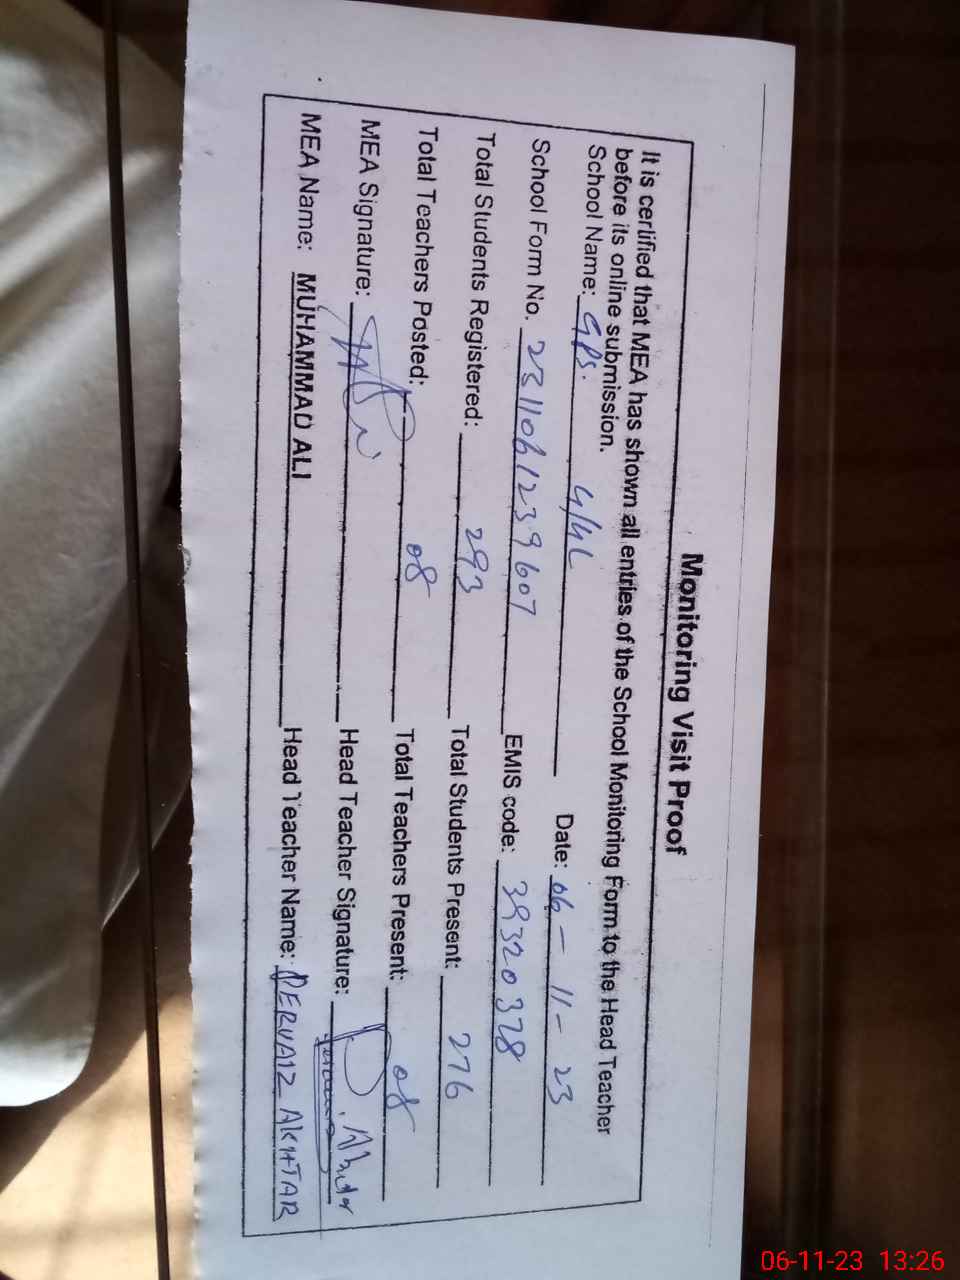 Monitoring Visit Proof
It is certified that MEA has shown all entries of the School Monitoring Form to the Head Teacher
before its online submission.
School Name: GPS. 4/4L Date: 06-11-23
School Form No. 2311061239607 EMIS code: 39320328
Total Students Registered: 293 Total Students Present: 276
Total Teachers Posted: 08 Total Teachers Present: 08
MEA Signature: Head Teacher Signature: P. Akhtar
MEA Name: MUHAMMAD ALI Head Teacher Name: PERVAIZ AKHTAR
06-11-23 13:26